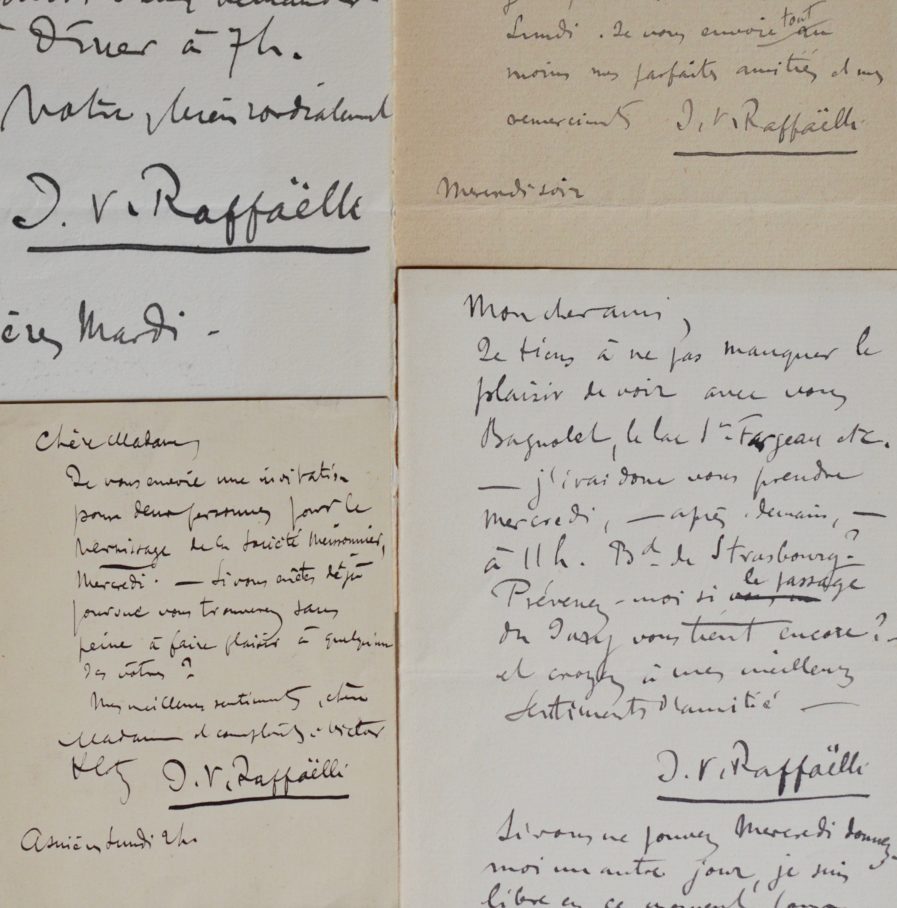 Dîner à 7h.
Votre bien cordialement
J. V. Raffaëlli
Mardi -
Lundi. Je vous envoie tout au
moins mes parfaites amitiés et mes
remerciements J. V. Raffaëlli
Mercredi soir
Chère Madame,
Je vous envoie une invitation
pour deux personnes pour le
vernissage de la Société Meissonnier,
Mercredi. — Si vous êtes déjà
pourvue vous trouverez sans
peine à faire plaisir à quelqu'un
des vôtres ?
Mes meilleurs sentiments, chère
Madame et compliments à Victor
Klotz J. V. Raffaëlli
Asnières Lundi 2h.
Mon cher ami,
Je tiens à ne pas manquer le
plaisir de voir avec vous
Bagnolet, le lac St Fargeau etc.
— j'irai donc vous prendre
Mercredi, — après demain, —
à 11h. Bd de Strasbourg ?
Prévenez-moi si le passage
du vous tient encore ? -
et croyez à mes meilleurs
sentiments d'amitié —
J. V. Raffaëlli
Si vous ne pouvez Mercredi donnez-
moi un autre jour, je suis
libre en ce moment